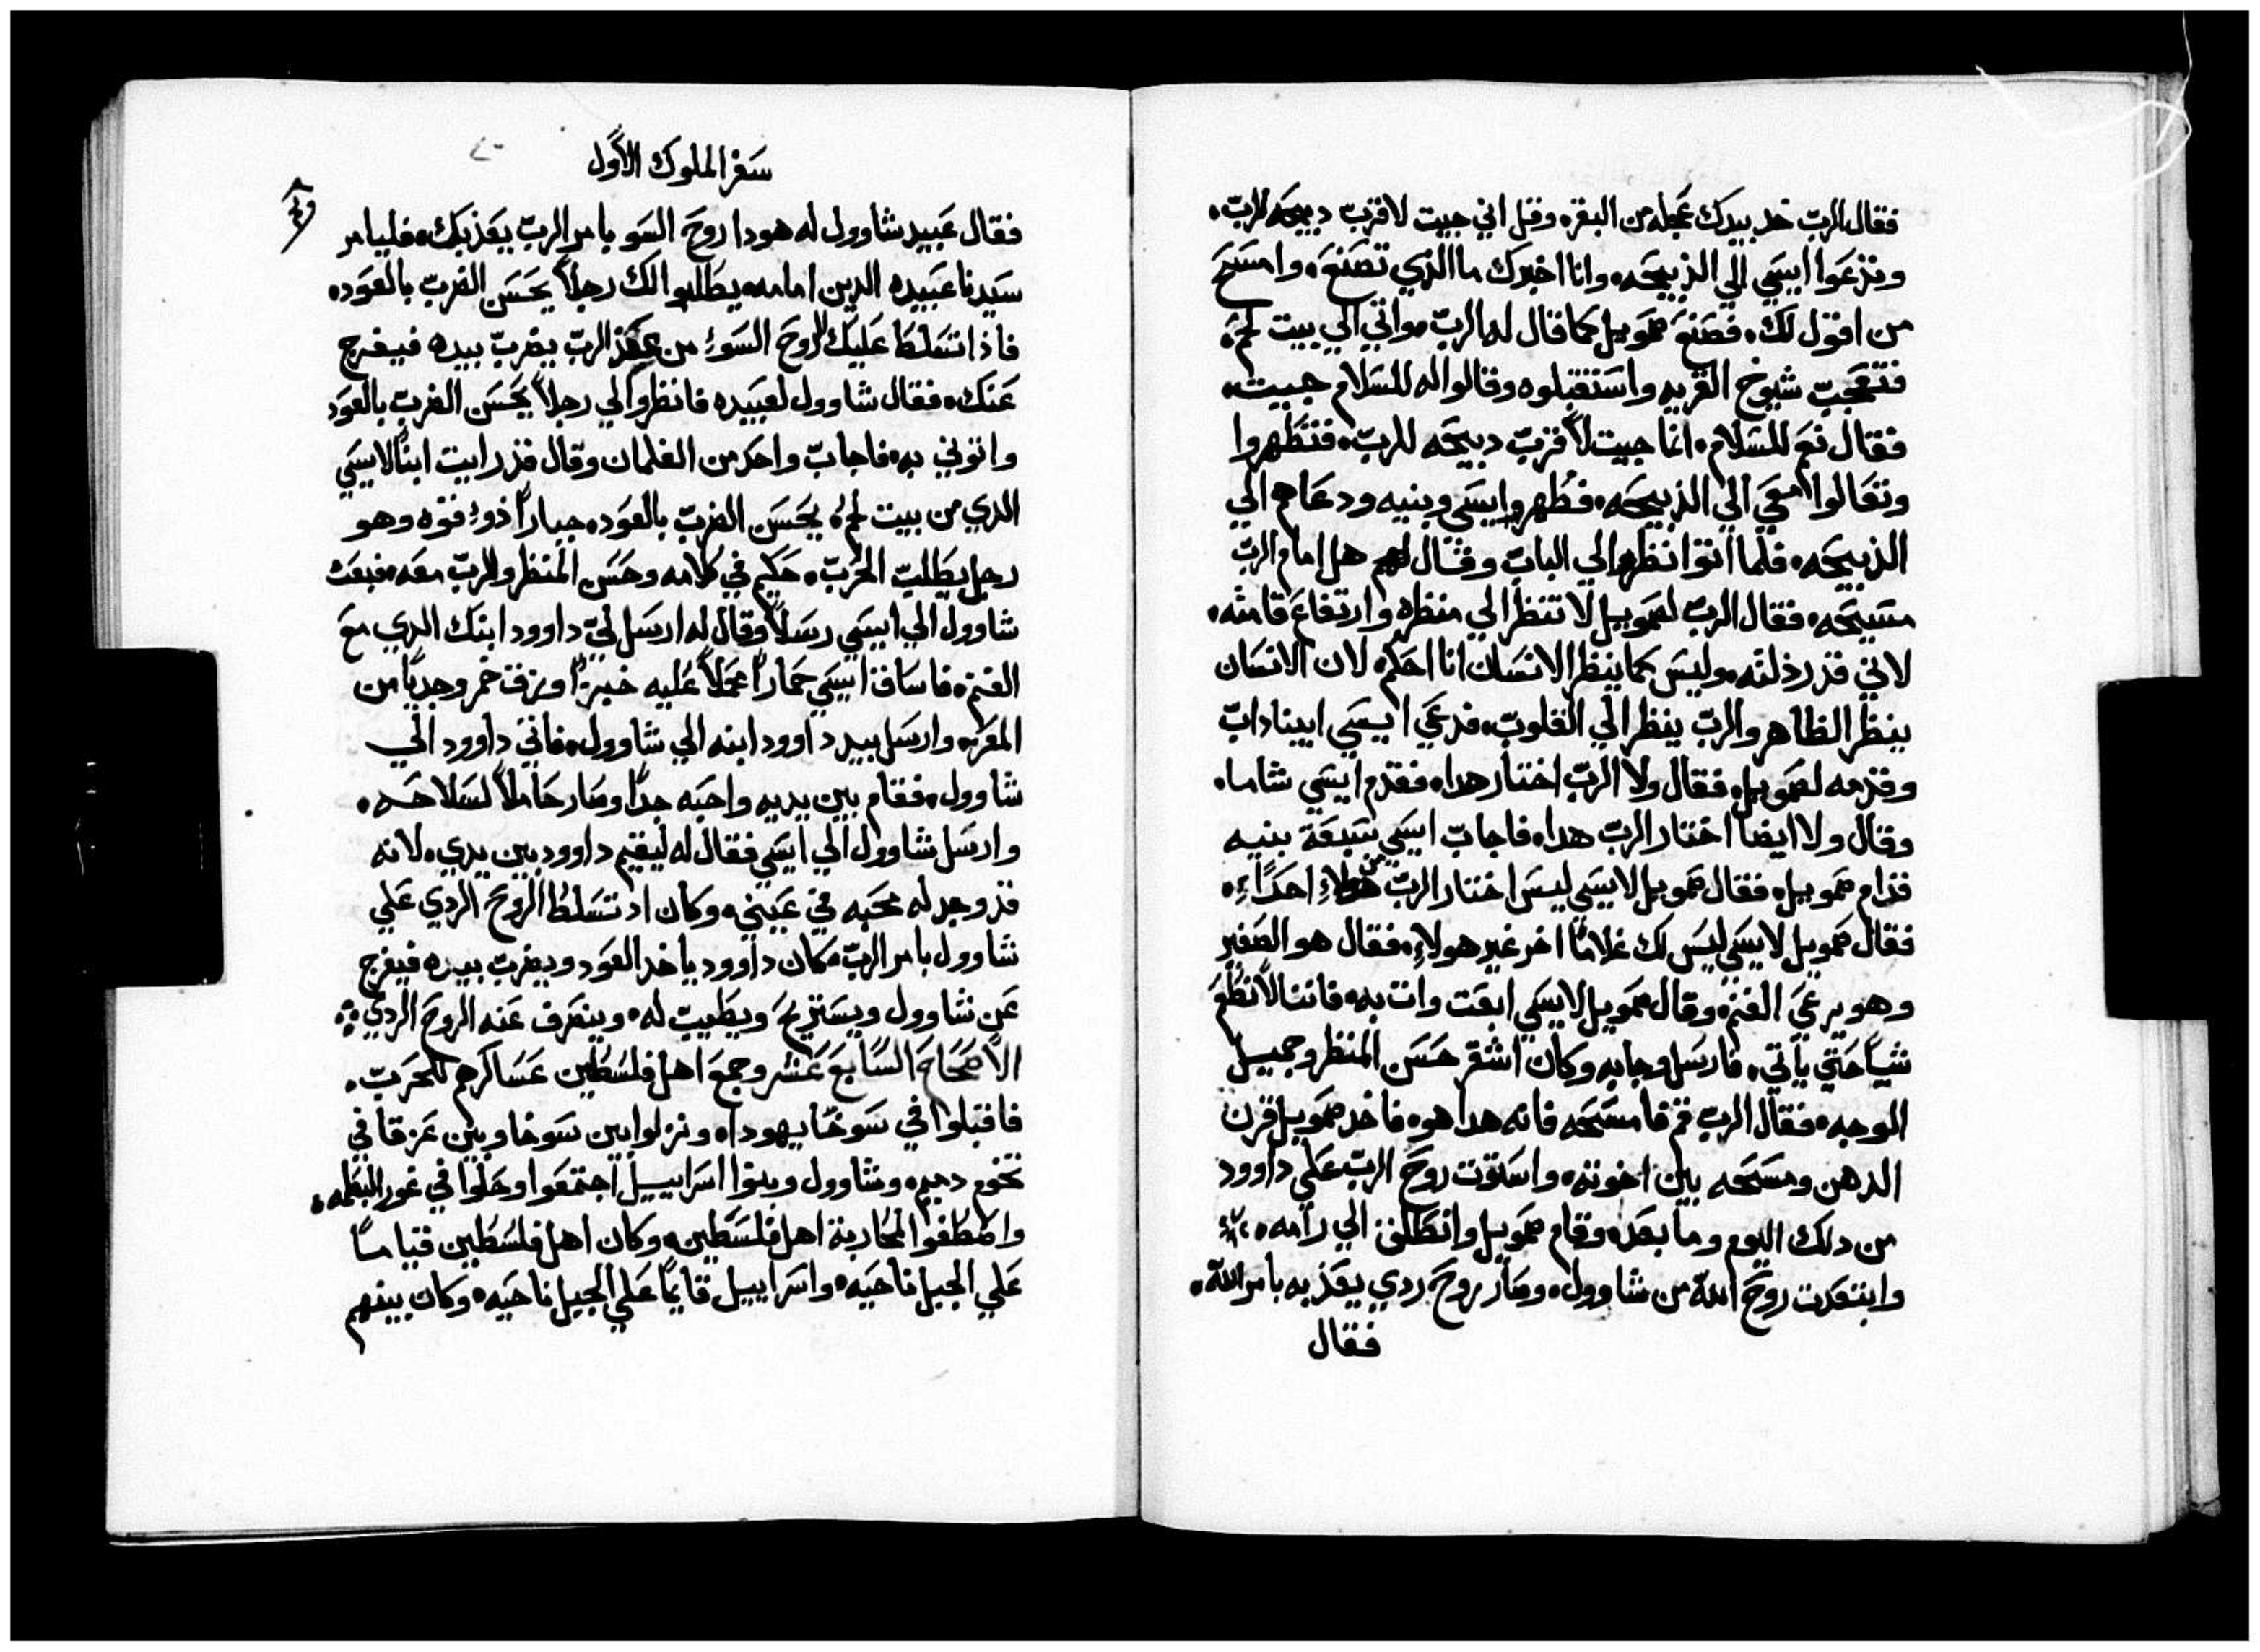 فقال الرب خد بيدك عجله من البقره وقل اني جيت لاقرب دبيحه للرب.
وتدعوا ايسي الي الذبيحه وانا اخبرك ما الذي تصنع وامسح
من اقول لك. فصنع صمويل كما قال له الرب واتي الي بيت لحم
فتعجب شيوخ القريه واستقبلوه وقالوا له للسلام جييت.
فقال نعم للسلام. انما جييت لاقرب دبيحه للرب. فتطهروا
وتعالوا معي الي الذبيحه. فطهروا ايسي وبنيه ودعاهم الي
الذبيحه. فلما اتوا نظر الي الياب وقال لهم هل امام الرب
مسيحه. فقال الرب لصمويل لا تنظر الي منظره وارتفاع قامته.
لاني قد رذلته. وليس كما ينظر الانسان انا احكم لان الانسان
ينظر الظاهر والرب ينظر الي القلوب. فدعي ايسي ابيناداب
وقدمه لصمويل. فقال ولا الرب اختار هدا. فقدم ايسي شاما.
وقال ولا ايضا اختار الرب هدا. فاجاب ايسي سبعة بنيه
قدام صمويل. فقال صمويل لايسي ليس اختار الرب من هولاء احداً.
فقال صمويل لايسي ليس لك غلاماً اخر غير هولاء. فقال هو الصغير
وهو يرعي الغنم. وقال صمويل لايسي ابعت وات به. فاننا لا نطعم
شياً حتي ياتي. فارسل وجابه وكان اشقر حسن المنظر وجميل
الوجه. فقال الرب قم فامسحه فانه هدا هو. فاخد صمويل قرن
الدهن ومسحه بين اخوته. واستوت روح الرب علي داوود
من دلك اليوم وما بعد. وقام صمويل وانطلق الي رامه.
وابتعدت روح الله من شاوول. وصار روح ردي يعذبه بامر الله.
فقال
سفر الملوك الاول
فقال عبيد شاوول له هودا روح السو بامر الرب يعذبك. فليامر
سيدنا عبيده الدين امامه يطلبوا لك رجلاً يحسن الضرب بالعود.
فاذا تسلط عليك الروح السوء من عند الرب يضرب بيده فيفرج
عنك. فقال شاوول لعبيده فانظروا لي رجلاً يحسن الضرب بالعود
واتوني به. فاجاب واحد من الغلمان وقال قد رايت ابناً لايسي
الدي من بيت لحم يحسن الضرب بالعود. جباراً ذو قوه وهو
رجل يطلب الحرب. حكيم في كلامه وحسن المنظر والرب معه. فبعت
شاوول الي ايسي رسلاً وقال له ارسل لي داوود ابنك الدي مع
الغنم. فاساق ايسي حماراً محملاً عليه خبزاً وزق خمر وجدياً من
المعز. وارسل بيد داوود ابنه الي شاوول. فاتي داوود الي
شاوول. فقام بين يديه واحبه جداً وصار حاملاً لسلاحه.
وارسل شاوول الي ايسي فقال له ليقيم داوود بين يدي. لانه
قد وجد له محبه في عيني. وكان اد تسلط الروح الردي علي
شاوول بامر الرب. كان داوود ياخد العود ويضرب بيده فيفرج
عن شاوول ويستريح ويطيب له. وينصرف عنه الروح الردي
الاصحاح السابع عشر وجمع اهل فلسطين عساكرهم للحرب.
فاقبلوا في سوخا يهودا. ونزلوا بين سوخا وبين عزقا في
تخوم دميم. وشاوول وبنوا اسراييل اجتمعوا وحلوا في غور البطمه.
واصطفوا لمحاربة اهل فلسطين. وكان اهل فلسطين قياماً
علي الجبل ناحيه. واسراييل قايماً علي الجبل ناحيه. وكان بينهم